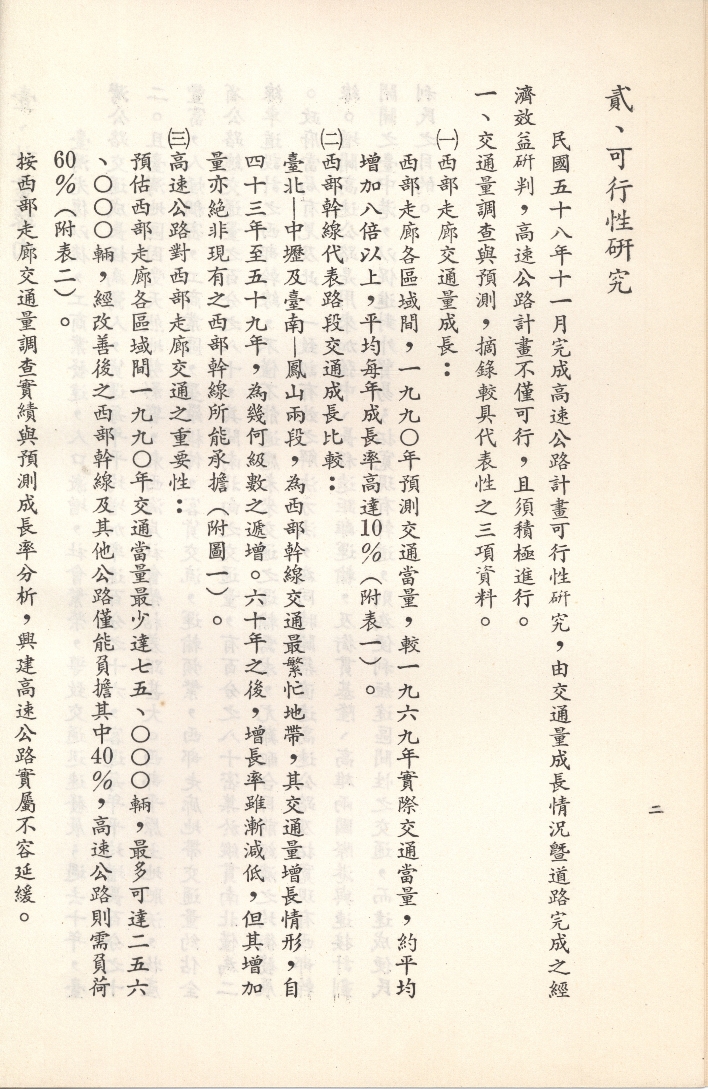 貳、可行性研究
民國五十八年十一月完成高速公路計畫可行性研究，由交通量成長情況曁道路完成之經
濟效益研判，高速公路計畫不僅可行，且須積極進行。
一、交通量調查與預測，摘錄較具代表性之三項資料。
㈠西部走廊交通量成長：
西部走廊各區域間，一九九〇年預測交通當量，較一九六九年實際交通當量，約平均
增加八倍以上，平均每年成長率高達10％（附表一）。
㈡西部幹線代表路段交通成長比較：
臺北—中壢及臺南—鳳山兩段，為西部幹線交通最繁忙地帶，其交通量增長情形，自
四十三年至五十九年，為幾何級數之遞增。六十年之後，增長率雖漸減低，但其增加
量亦絕非現有之西部幹線所能承擔（附圖一）。
㈢高速公路對西部走廊交通之重要性：
預估西部走廊各區域間一九九〇年交通當量最少達七五、〇〇〇輛，最多可達二五六
、〇〇〇輛，經改善後之西部幹線及其他公路僅能負擔其中40％，高速公路則需負荷
60％（附表二）。
按西部走廊交通量調查實績與預測成長率分析，興建高速公路實屬不容延緩。
二